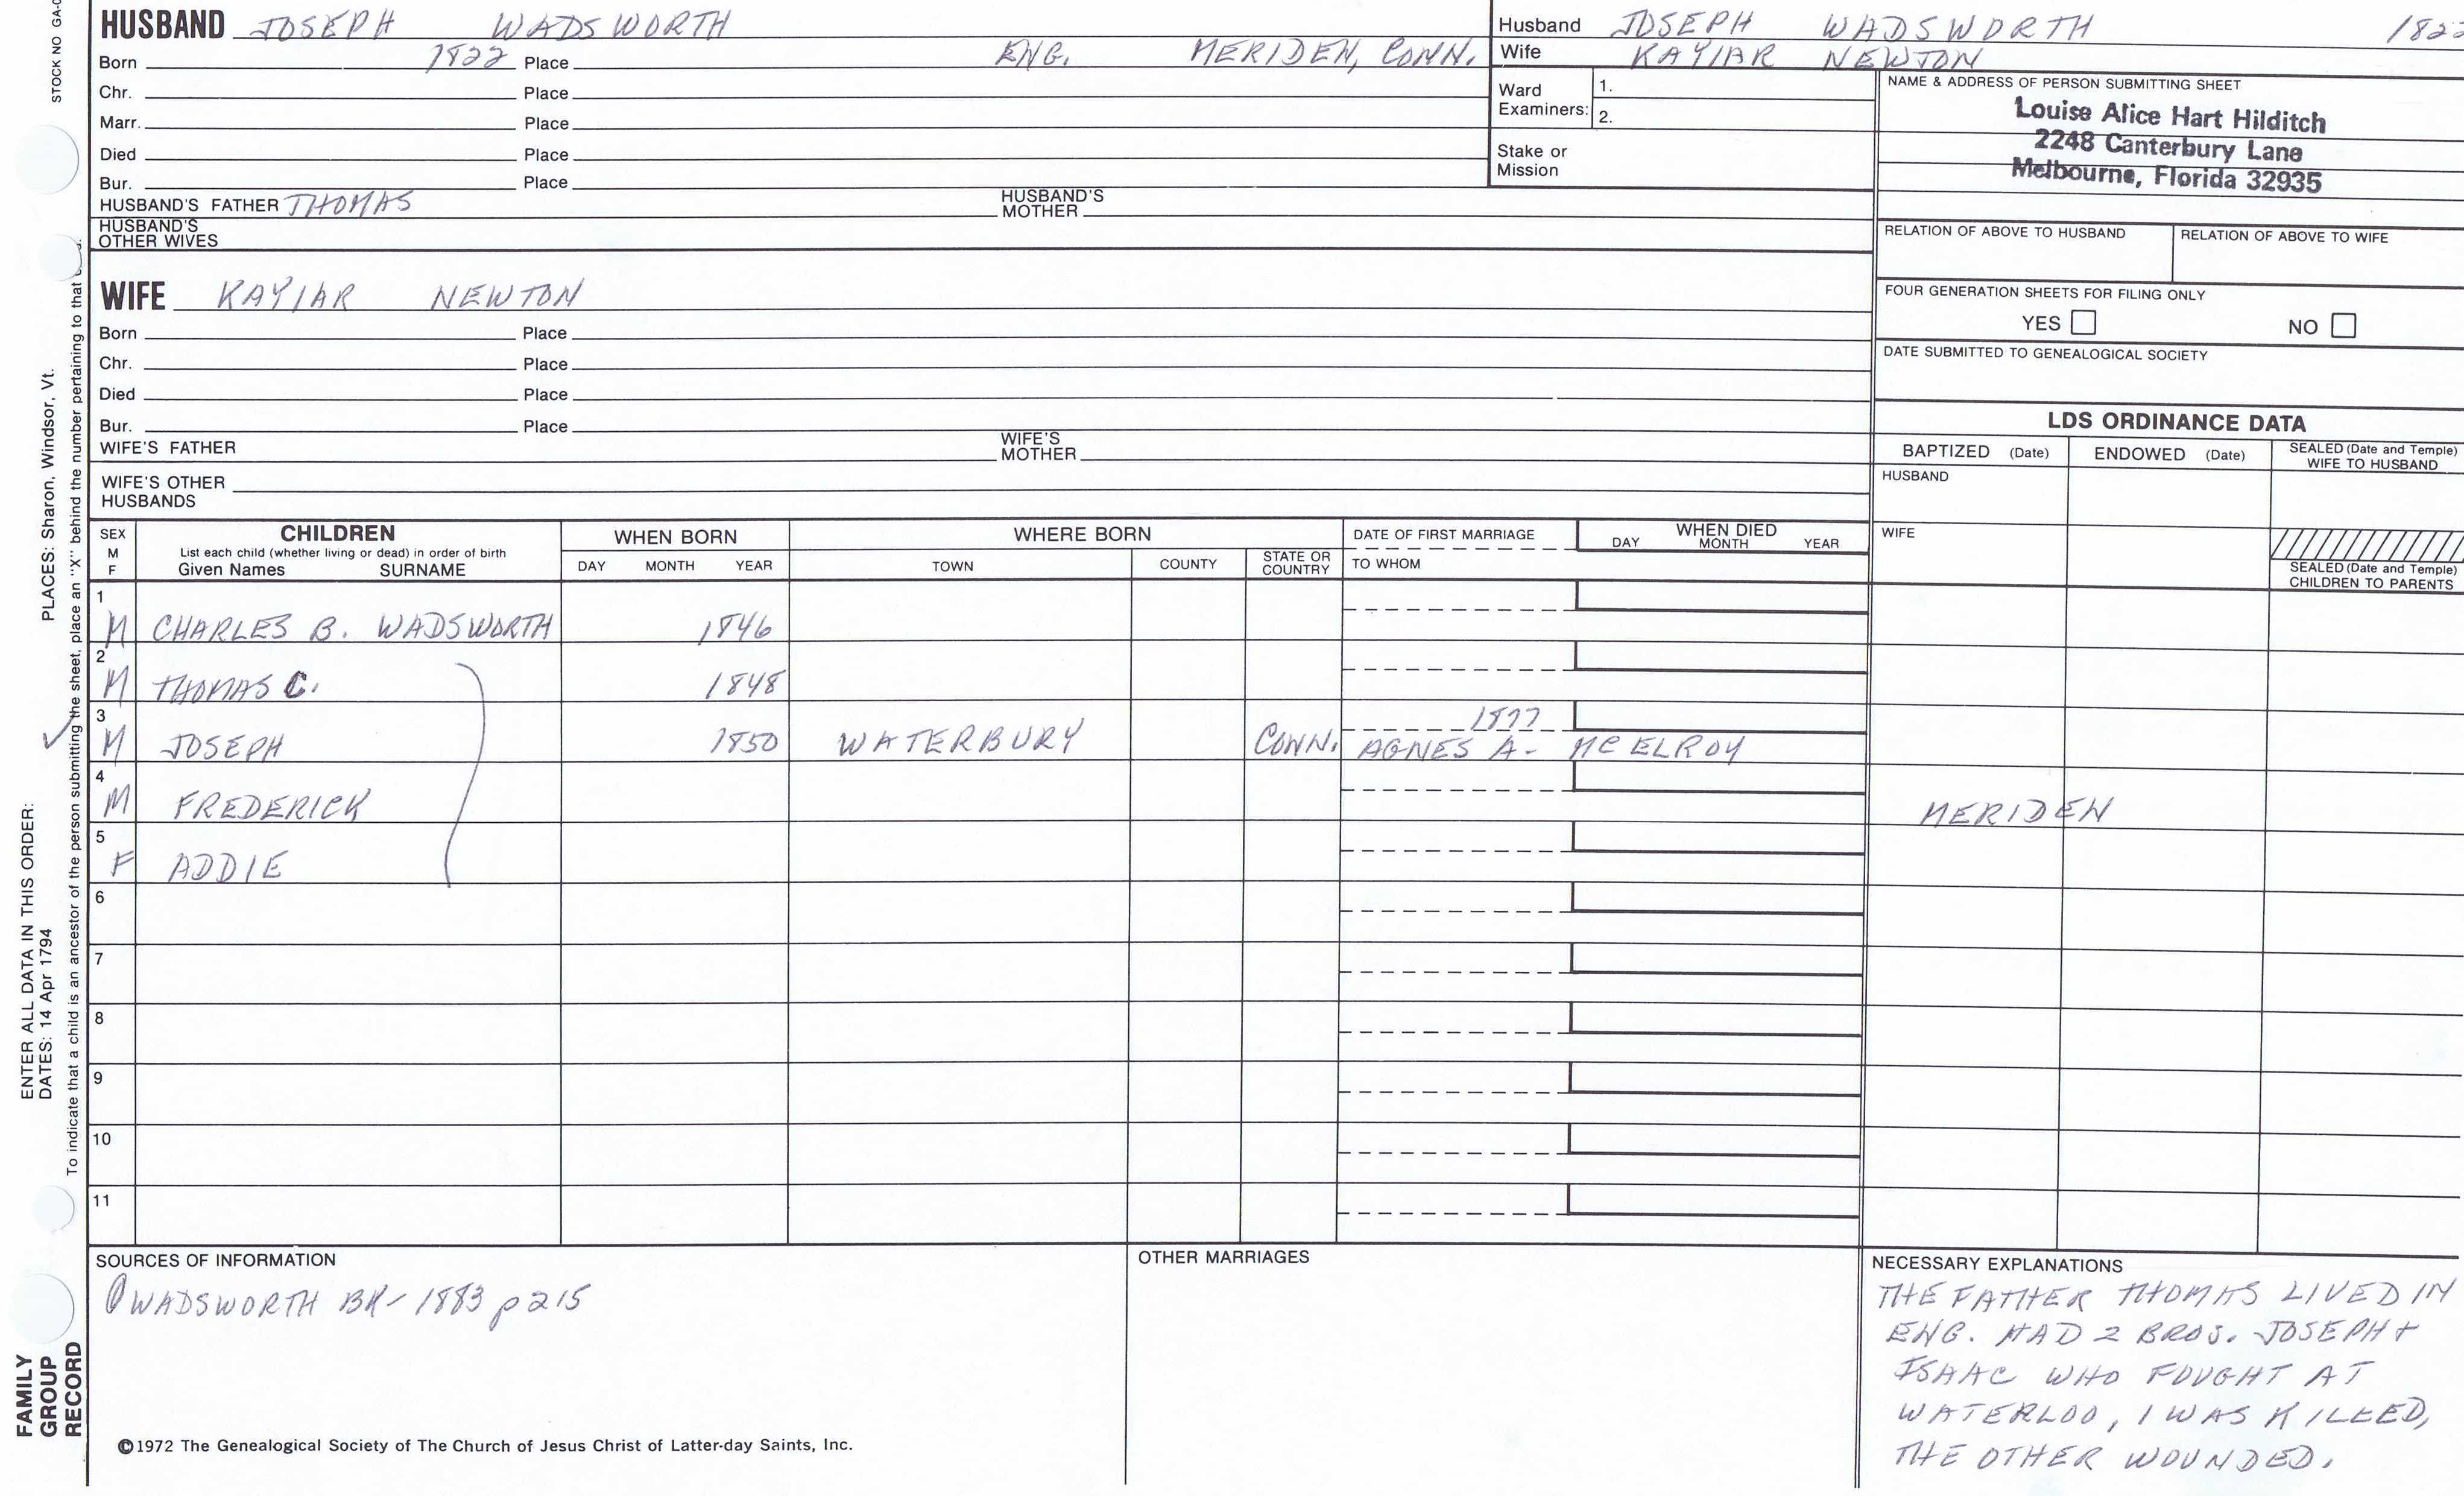 STOCK NO GA-
HUSBAND JOSEPH WADSWORTH
Born 1822 Place ENG. MERIDEN, CONN.
Chr. Place
Marr. Place
Died Place
Bur. Place
HUSBAND'S FATHER THOMAS HUSBAND'S MOTHER
HUSBAND'S OTHER WIVES
Husband JOSEPH WADSWORTH 1822
Wife KAYIAR NEWTON
Ward Examiners: 1.
2.
Stake or Mission
NAME & ADDRESS OF PERSON SUBMITTING SHEET
Louise Alice Hart Hilditch
2248 Canterbury Lane
Melbourne, Florida 32935
RELATION OF ABOVE TO HUSBAND RELATION OF ABOVE TO WIFE
FOUR GENERATION SHEETS FOR FILING ONLY
YES NO
DATE SUBMITTED TO GENEALOGICAL SOCIETY
WIFE KAYIAR NEWTON
Born Place
Chr. Place
Died Place
Bur. Place
WIFE'S FATHER WIFE'S MOTHER
WIFE'S OTHER HUSBANDS
LDS ORDINANCE DATA
BAPTIZED (Date) ENDOWED (Date) SEALED (Date and Temple) WIFE TO HUSBAND
HUSBAND
WIFE
SEALED (Date and Temple) CHILDREN TO PARENTS
SEX M F
CHILDREN
List each child (whether living or dead) in order of birth
Given Names SURNAME
WHEN BORN
DAY MONTH YEAR
WHERE BORN
TOWN COUNTY STATE OR COUNTRY
DATE OF FIRST MARRIAGE
TO WHOM
WHEN DIED
DAY MONTH YEAR
1 M CHARLES B. WADSWORTH 1846
2 M THOMAS C. 1848
3 M JOSEPH 1850 WATERBURY CONN. 1877 AGNES A- MCELROY
4 M FREDERICK MERIDEN
5 F ADDIE
6
7
8
9
10
11
SOURCES OF INFORMATION
WADSWORTH BK- 1883 p215
OTHER MARRIAGES
NECESSARY EXPLANATIONS
THE FATHER THOMAS LIVED IN
ENG. HAD 2 BROS. JOSEPH +
ISAAC WHO FOUGHT AT
WATERLOO, 1 WAS KILLED,
THE OTHER WOUNDED.
©1972 The Genealogical Society of The Church of Jesus Christ of Latter-day Saints, Inc.
PLACES: Sharon, Windsor, Vt.
ENTER ALL DATA IN THIS ORDER:
DATES: 14 Apr 1794
To indicate that a child is an ancestor of the person submitting the sheet, place an "X" behind the number pertaining to that
FAMILY
GROUP
RECORD